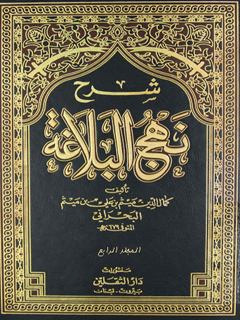 شرح
نهج البلاغة
تأليف
كمال الدين ميثم بن علي بن ميثم
البحراني
المتوفى ٦٧٩ هـ
المجلد الرابع
منشورات
دار الثقلين
بيروت - لبنان